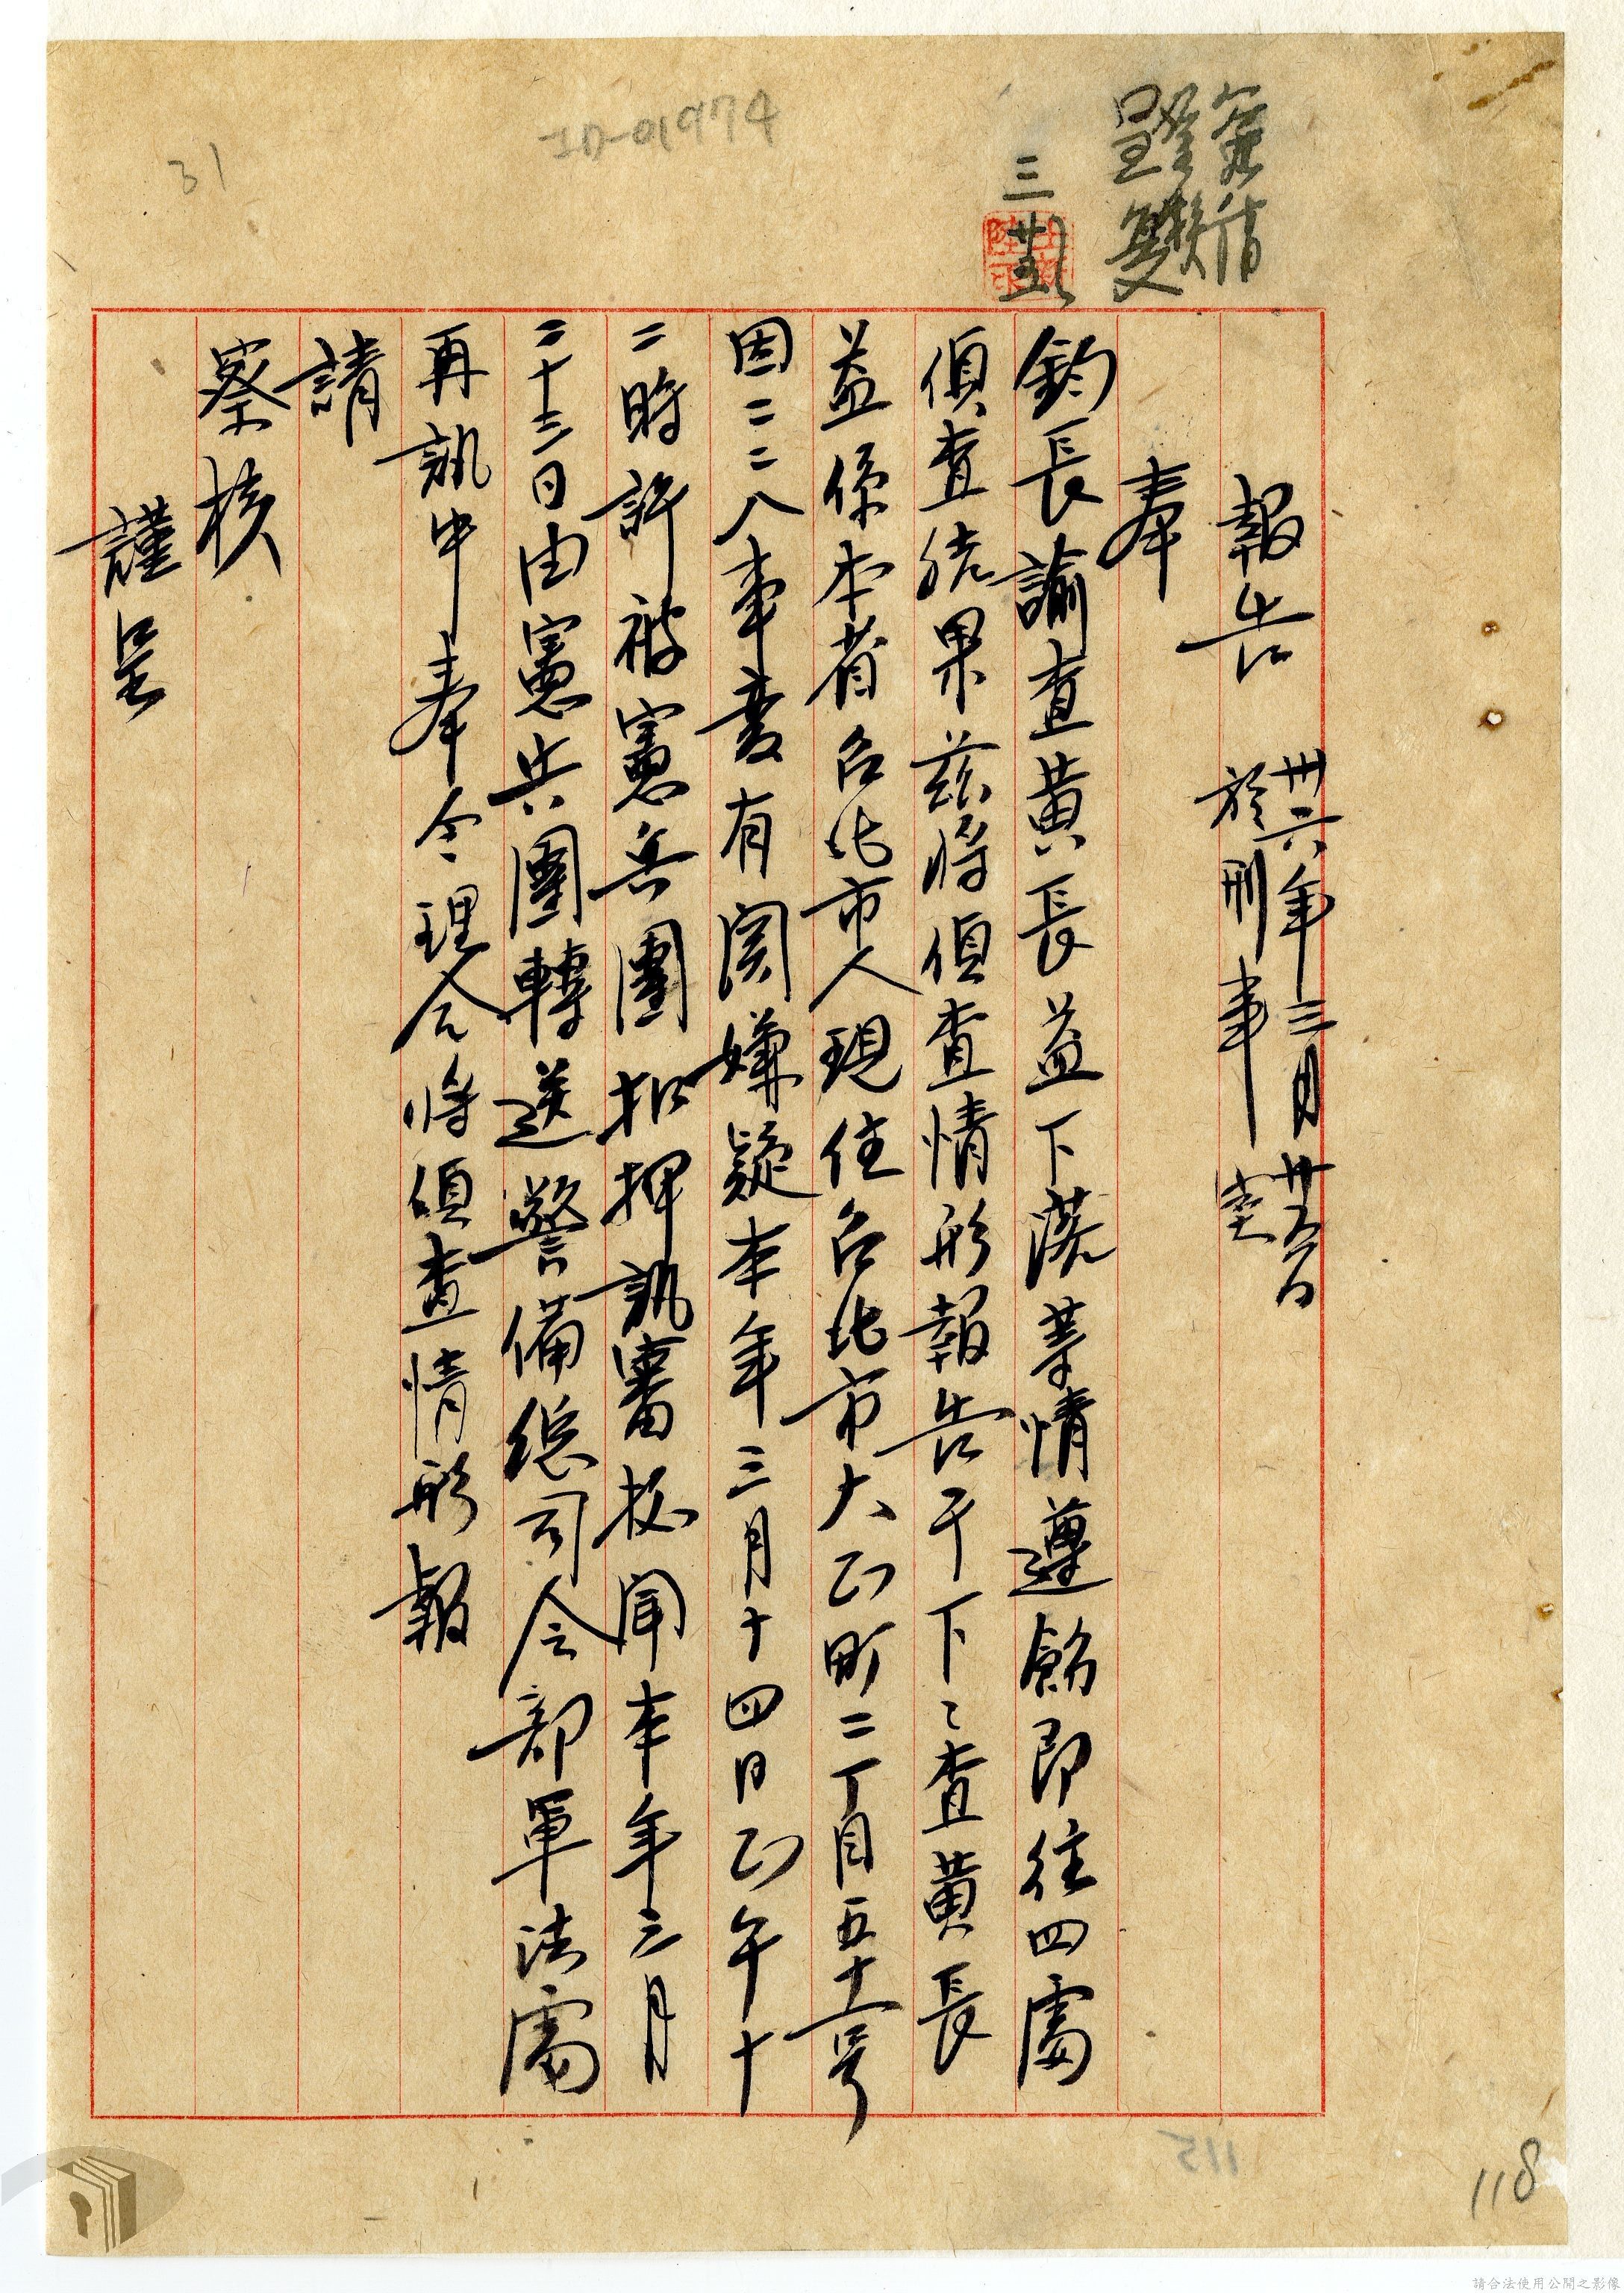 報告
卅六年三月廿五日
於刑事室
奉
鈞長諭查黃長益下落等情遵飭即往四處
偵查結果茲將偵查情形報告于下:查黃長
益係本省台北市人現住台北市大正町二丁目五十一号
因二二八事变有関嫌疑本年三月十四日正午十
二時許被憲兵團扣押訊審茲聞本年三月
二十三日由憲兵團轉送警備総司令部軍法處
再訊中奉令理合将偵查情形報
請
察核
謹呈
呈覆
三 廿五
JD-01974
31
115
118
請合法使用公開之影像